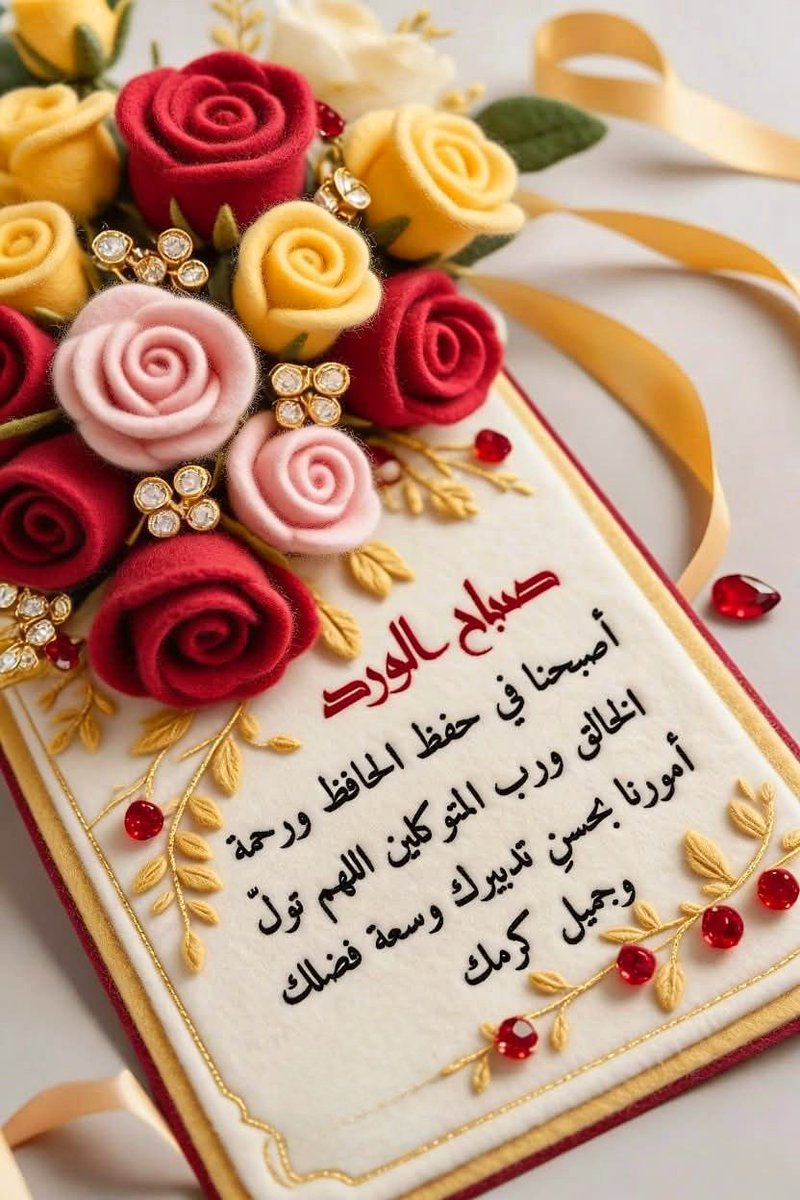 صباح الورد
أصبحنا في حفظ الحافظ ورحمة
الخالق ورب المتوكلين اللهم تولّ
أمورنا بحسنِ تدبيرك وسعة فضلك
وجميل كرمك